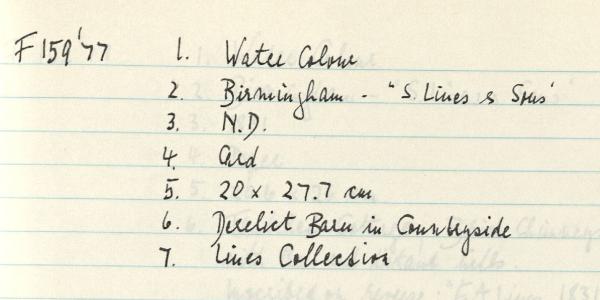 F159'77 1. Water Colour
2. Birmingham - "S. Lines & Sons'
3. N.D.
4. Card
5. 20 x 27.7 cm
6. Derelict Barn in Countryside
7. Lines Collection